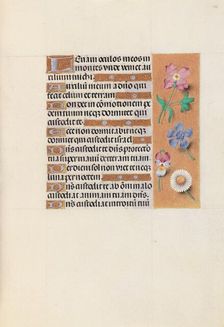 Leuaui oculos meos in
montes unde veniet au
xilium michi.
Auxilium meum a dño
fecit celum et terram.
Non det in cõmotionem pe
dem tuum neq3 dormitet qui
custodit te.
Ecce non dormitabit neq3
dormiet qui custodit israel.
Dñs custodit te dñs protectio
tua super manum dexteram tuam.
Per diem sol non vret te neq3
luna per noctem.
Dñs custodit te ab õm malo
custodiat animam tuam dñs
Dñs custodiat introitũ tuũ